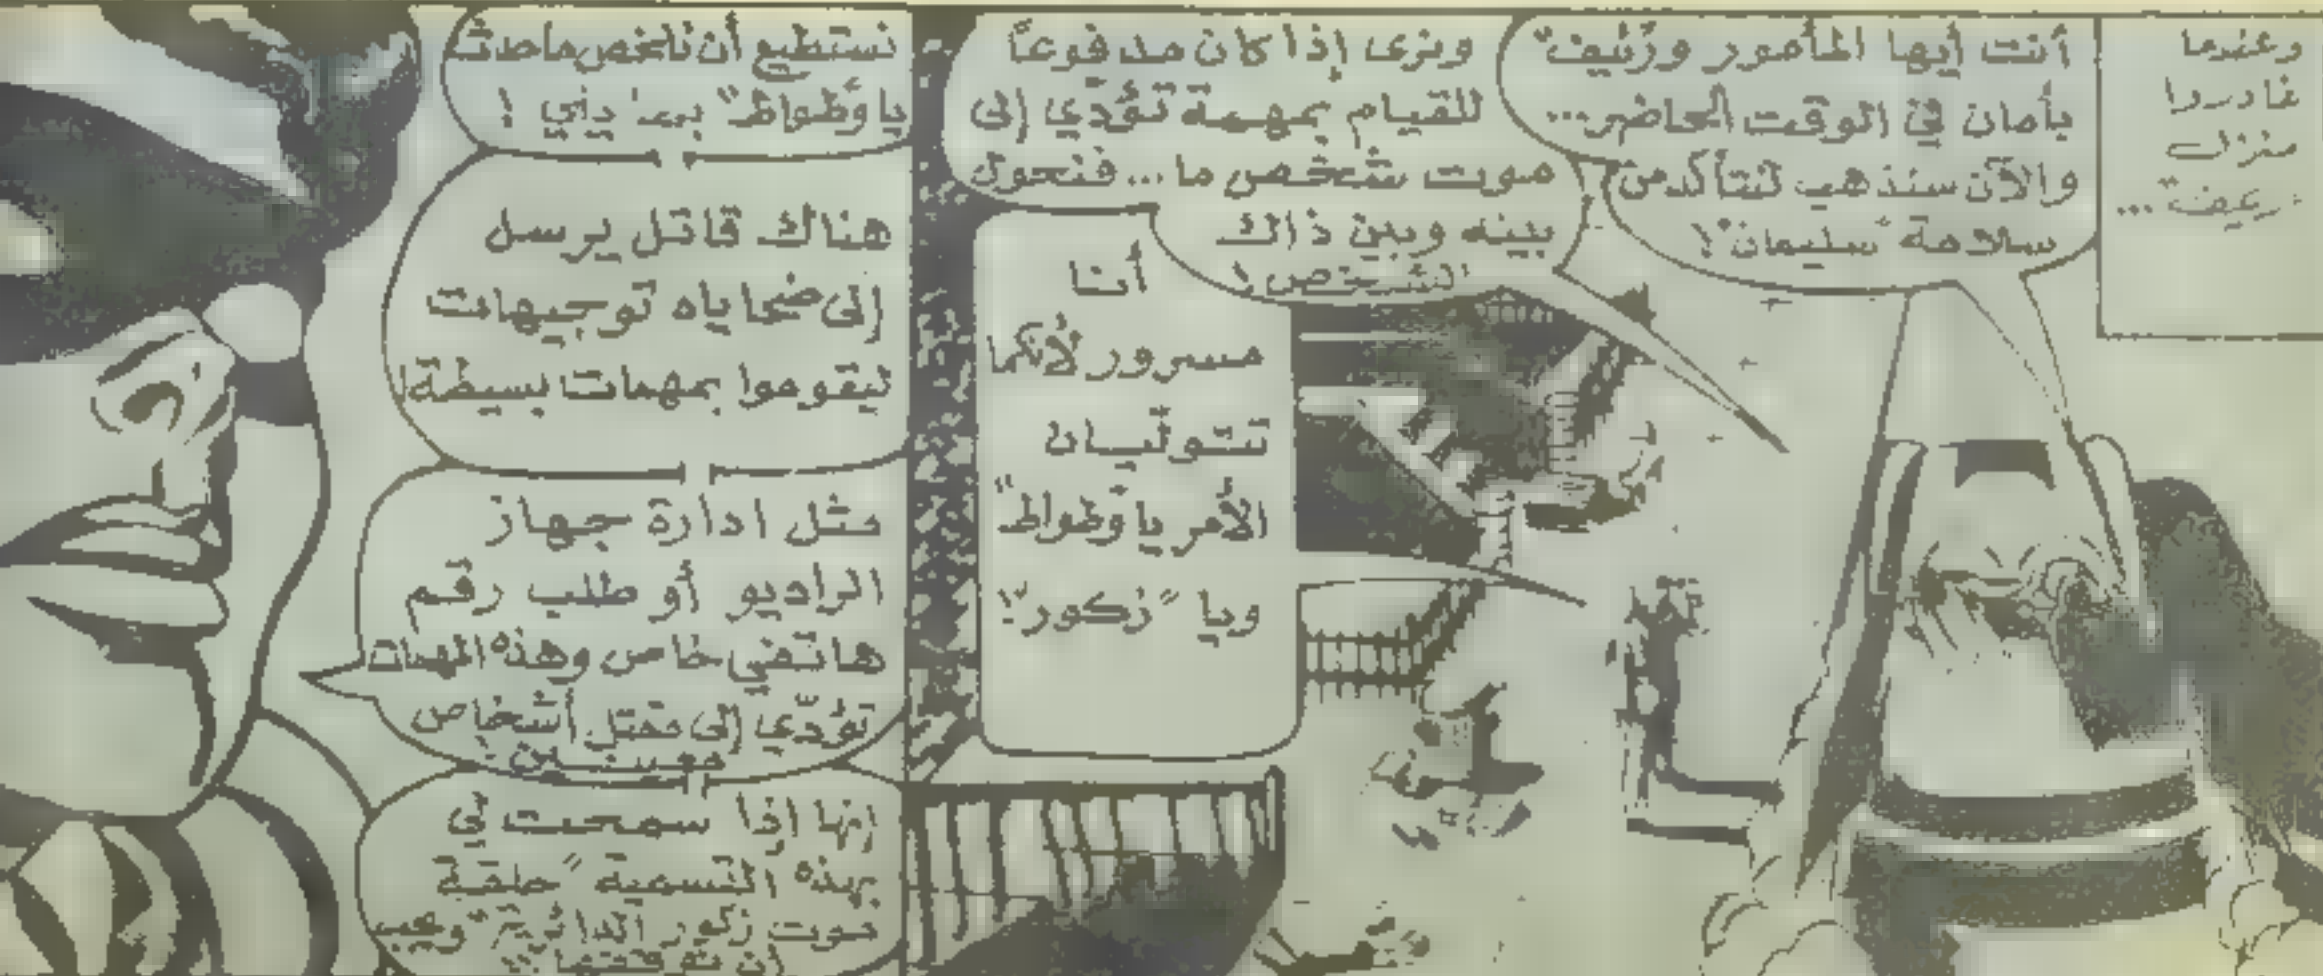 وعندما
غادروا
منزل
رئيف...
أنت أيها المأمور و"رئيف"
بأمان في الوقت الحاضر...
والآن سنذهب لنتأكد من
سلامة "سليمان"!
ونرى إذا كان مدفوعاً
للقيام بمهمة تؤدّي إلى
موت شخص ما... فنحول
بينه وبين ذلك
الشخص!
أنا
مسرور لأنكما
تتولّيان
الأمر يا "وطواط"
ويا "زكور"!
نستطيع أن نلخص ما حدث
يا "وطواط" بما يلي!
هناك قاتل يرسل
إلى ضحاياه توجيهات
ليقوموا بمهمات بسيطة!
مثل ادارة جهاز
الراديو أو طلب رقم
هاتفي خاص وهذه المهمات
تؤدّي إلى مقتل أشخاص
معينين!
إنها إذا سمحت لي
بهذه التسمية "حلقة
موت زكور الدائرية" ويجب
أن